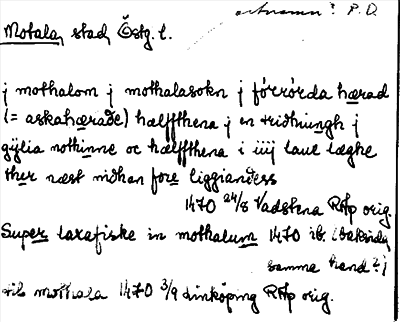 ortnamn? P.D.
Motala, stad, Östg. l.
j mothalom j mothalasokn j förrörda hærad
(= askahæraðe) hælffthena j en triðhiungh j
gylia nothinne oc hælffthena i iiij laue læghe
ther næst nidhan fore liggiandess
1470 24/8 Vadstena RAp orig.
Super laxafiske in mothalum 1470 ib. (baksida,
samma hand?)
till mothala 1470 3/9 Linköping RAp orig.